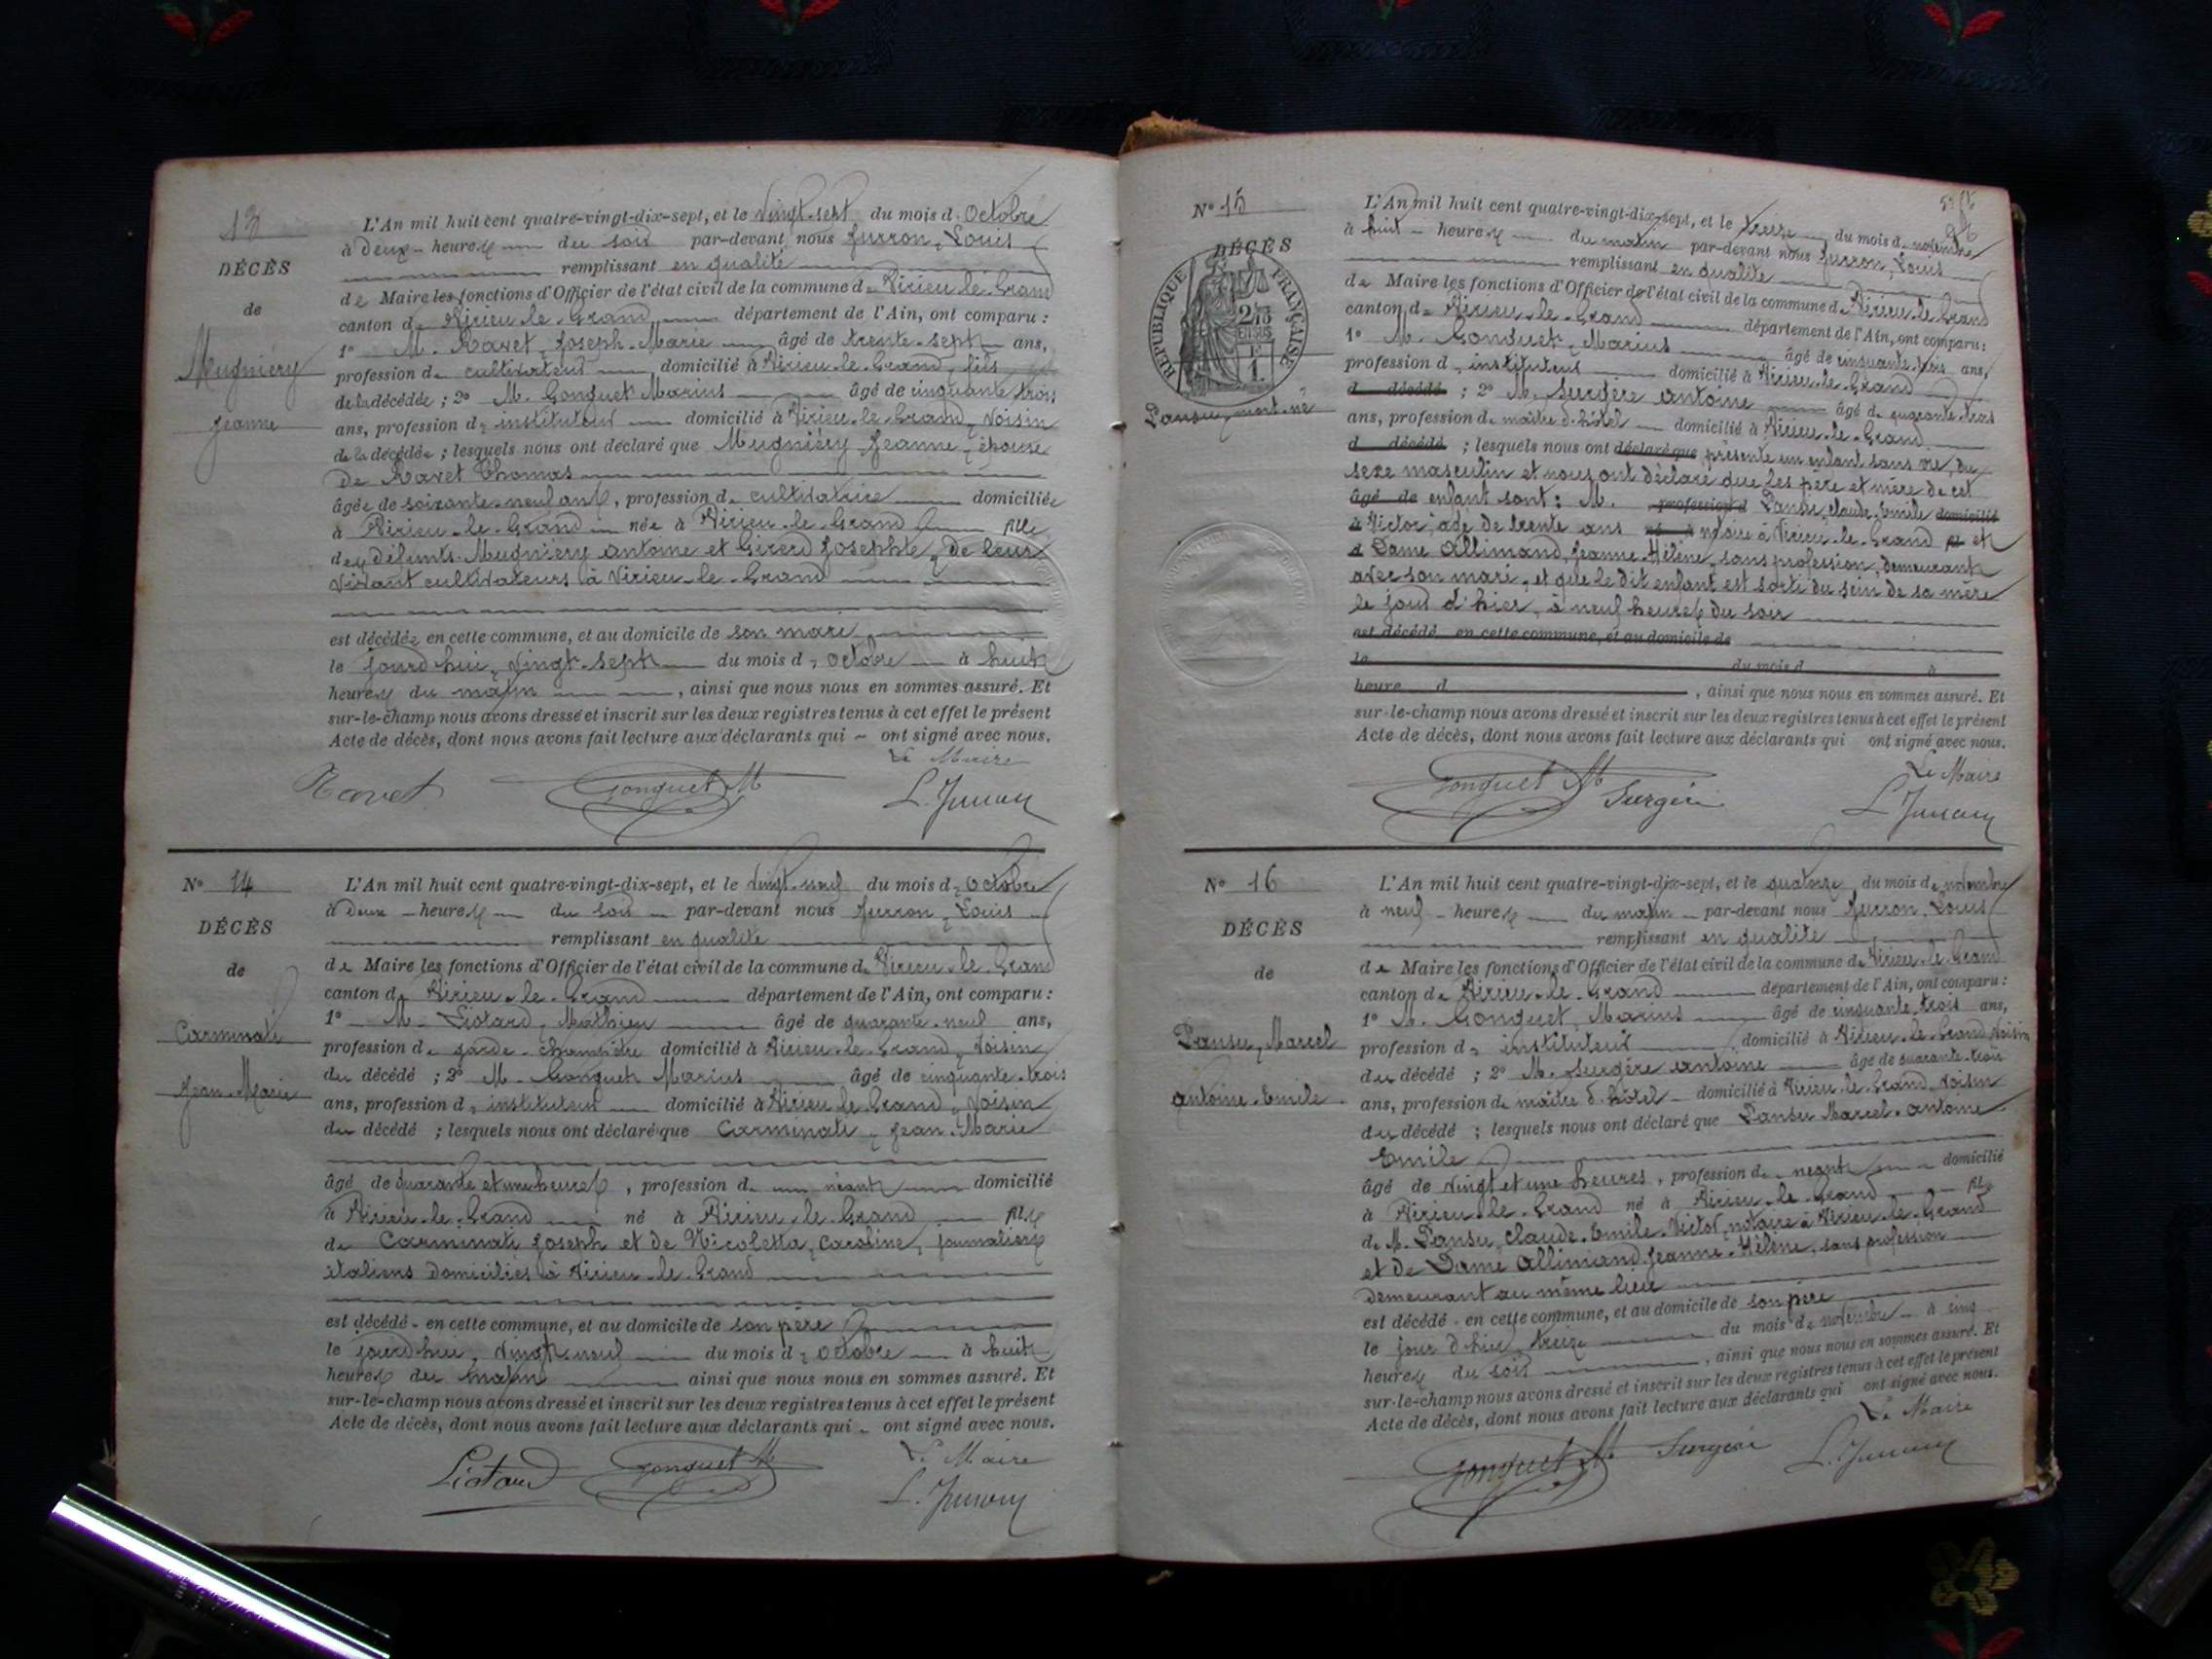 13
DÉCÈS
de
Mugniéry
Jeanne
L'An mil huit cent quatre-vingt-dix-sept, et le vingt-sept du mois d'Octobre
à deux heures du soir par-devant nous Juvron, Louis
remplissant en qualité
de Maire les fonctions d'Officier de l'état civil de la commune de Virieu-le-Grand
canton de Virieu-le-Grand département de l'Ain, ont comparu :
1° M. Ravet, Joseph-Marie âgé de trente-sept ans,
profession de cultivateur domicilié à Virieu-le-Grand, fils
de la décédée ; 2° M. Gonguet Marius âgé de cinquante trois
ans, profession d'instituteur domicilié à Virieu-le-Grand, voisin
de la décédée ; lesquels nous ont déclaré que Mugniéry, Jeanne, épouse
De Ravet Thomas
âgée de soixante-neuf ans, profession de cultivatrice domiciliée
à Virieu-le-Grand née à Virieu-le-Grand fille
des défunts Mugniéry Antoine et Girerd Josephte, de leur
vivant cultivateurs à Virieu-le-Grand
est décédée en cette commune, et au domicile de son mari
le jourd'hui, vingt-sept du mois d'octobre à huit
heures du matin, ainsi que nous nous en sommes assuré. Et
sur-le-champ nous avons dressé et inscrit sur les deux registres tenus à cet effet le présent
Acte de décès, dont nous avons fait lecture aux déclarants qui ont signé avec nous.
Le Maire
Ravet Gonguet M
N° 14
DÉCÈS
de
Carminati
Jean-Marie
L'An mil huit cent quatre-vingt-dix-sept, et le vingt-neuf du mois d'Octobre
à deux heures du soir par-devant nous Juvron, Louis
remplissant en qualité
de Maire les fonctions d'Officier de l'état civil de la commune de Virieu-le-Grand
canton de Virieu-le-Grand département de l'Ain, ont comparu :
1° M. Liotard, Mathieu âgé de quarante-neuf ans,
profession de garde-champêtre domicilié à Virieu-le-Grand, voisin
du décédé ; 2° M. Gonguet Marius âgé de cinquante-trois
ans, profession d'instituteur domicilié à Virieu-le-Grand, voisin
du décédé ; lesquels nous ont déclaré que Carminati, Jean-Marie
âgé de quarante et une heures, profession de néant domicilié
à Virieu-le-Grand né à Virieu-le-Grand fils
de Carminati Joseph et de Nicoletta, Caroline, journaliers
italiens domiciliés à Virieu-le-Grand
est décédé en cette commune, et au domicile de son père
le jourd'hui, vingt-neuf du mois d'octobre à huit
heures du matin ainsi que nous nous en sommes assuré. Et
sur-le-champ nous avons dressé et inscrit sur les deux registres tenus à cet effet le présent
Acte de décès, dont nous avons fait lecture aux déclarants qui ont signé avec nous.
Le Maire
Liotard Gonguet M
N° 15
DÉCÈS
RÉPUBLIQUE FRANÇAISE
2/10
EN SUS
1F
Pansu, mort-né
L'An mil huit cent quatre-vingt-dix-sept, et le treize du mois de novembre
à huit heures du matin par-devant nous Juvron, Louis
remplissant en qualité
de Maire les fonctions d'Officier de l'état civil de la commune de Virieu-le-Grand
canton de Virieu-le-Grand département de l'Ain, ont comparu :
1° M. Gonguet, Marius âgé de cinquante-trois ans,
profession d'instituteur domicilié à Virieu-le-Grand
d décédé ; 2° M. Surgère Antoine âgé de quarante-trois
ans, profession de maître d'hôtel domicilié à Virieu-le-Grand
d décédé ; lesquels nous ont déclaré que présenté un enfant sans vie, du
sexe masculin et nous ont déclaré que les père et mère de cet
âgé de enfant sont : M. profession d Pansu, Claude-Emile domicilié
à Victor, âgé de trente ans né à notaire à Virieu-le-Grand et
d Dame Allimand, Jeanne-Hélène, sans profession, demeurant
avec son mari, et que le dit enfant est sorti du sein de sa mère
le jour d'hier, à neuf heures du soir
est décédé en cette commune, et au domicile de
le du mois d à
heure d , ainsi que nous nous en sommes assuré. Et
sur-le-champ nous avons dressé et inscrit sur les deux registres tenus à cet effet le présent
Acte de décès, dont nous avons fait lecture aux déclarants qui ont signé avec nous.
Le Maire
Gonguet M Surgère
N° 16
DÉCÈS
de
Pansu, Marcel
Antoine-Emile
L'An mil huit cent quatre-vingt-dix-sept, et le quatorze du mois de novembre
à neuf heures du matin par-devant nous Juvron, Louis
remplissant en qualité
de Maire les fonctions d'Officier de l'état civil de la commune de Virieu-le-Grand
canton de Virieu-le-Grand département de l'Ain, ont comparu :
1° M. Gonguet, Marius âgé de cinquante-trois ans,
profession d'instituteur domicilié à Virieu-le-Grand voisin
du décédé ; 2° M. Surgère Antoine âgé de quarante-trois
ans, profession de maître d'hôtel domicilié à Virieu-le-Grand, voisin
du décédé ; lesquels nous ont déclaré que Pansu Marcel-Antoine
Emile
âgé de vingt et une heures, profession de néant domicilié
à Virieu-le-Grand né à Virieu-le-Grand fils
de M. Pansu, Claude-Emile-Victor, notaire à Virieu-le-Grand
et de Dame Allimand Jeanne-Hélène, sans profession
demeurant au même lieu
est décédé en cette commune, et au domicile de son père
le jour d'hier, treize du mois de novembre à cinq
heures du soir, ainsi que nous nous en sommes assuré. Et
sur-le-champ nous avons dressé et inscrit sur les deux registres tenus à cet effet le présent
Acte de décès, dont nous avons fait lecture aux déclarants qui ont signé avec nous.
Le Maire
Gonguet M Surgère